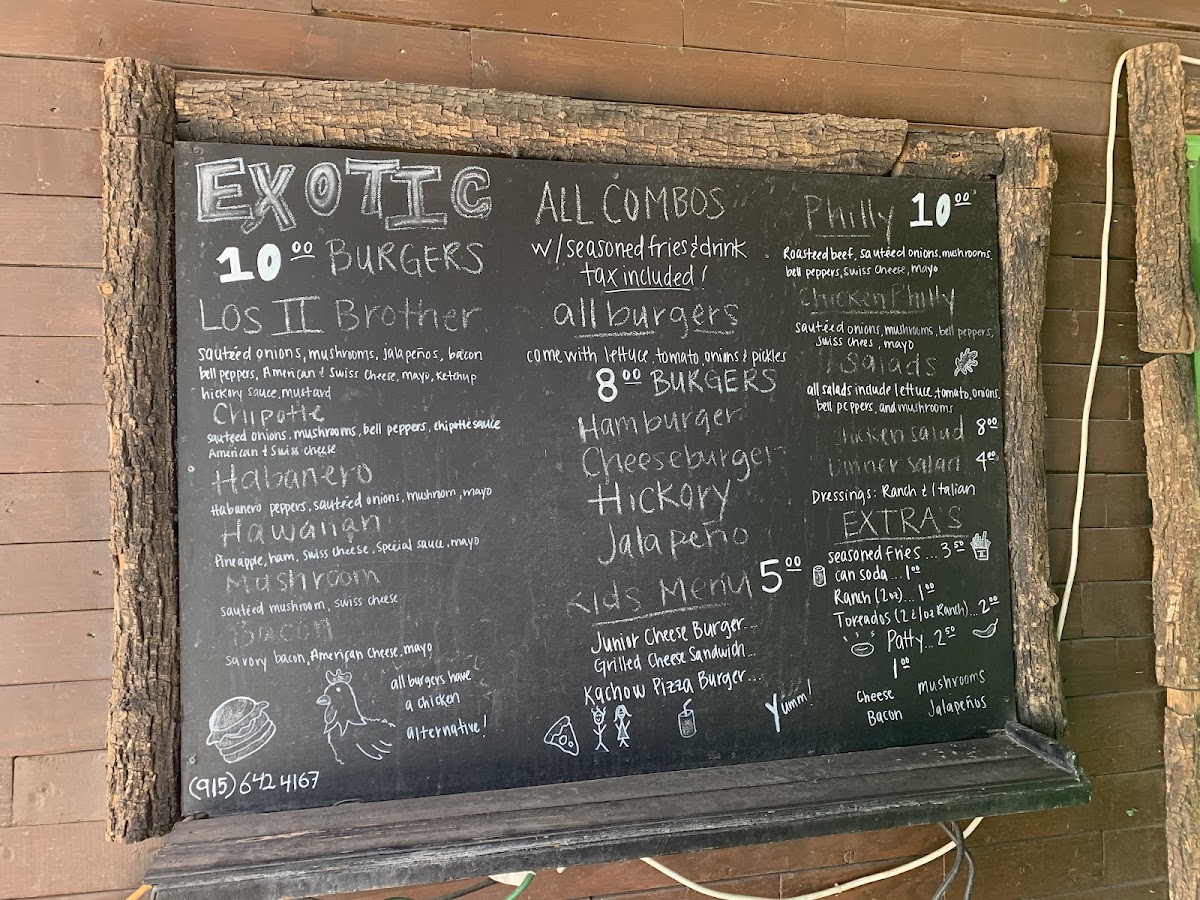 EXOTIC
10⁰⁰ BURGERS
Los II Brother
sautéed onions, mushrooms, jalapeños, bacon
bell peppers, American & Swiss Cheese, mayo, Ketchup
hickory sauce, mustard
Chipotle
sautéed onions, mushrooms, bell peppers, chipotle sauce
American & Swiss cheese
Habanero
Habanero peppers, sautéed onions, mushroom, mayo
Hawaiian
Pineapple, ham, Swiss cheese, Special sauce, mayo
Mushroom
sautéed mushroom, swiss cheese
Bacon
savory bacon, American Cheese, mayo
all burgers have
a chicken
alternative!
(915) 642 4167
ALL COMBOS
w/ seasoned fries & drink
tax included!
all burgers
come with lettuce, tomato, onions & pickles
8⁰⁰ BURGERS
Hamburger
Cheeseburger
Hickory
Jalapeño
Kids Menu 5⁰⁰
Junior Cheese Burger...
Grilled Cheese Sandwich...
Kachow Pizza Burger...
Yumm!
Philly 10⁰⁰
Roasteed beef, sautéed onions, mushrooms,
bell peppers, Swiss Cheese, mayo
Chicken Philly
sautéed onions, mushrooms, bell peppers,
swiss chees, mayo
Salads
all salads include lettuce, tomato, onions,
bell peppers, and mushrooms
Chicken salad 8⁰⁰
Dinner salad 4⁰⁰
Dressings: Ranch & Italian
EXTRA'S
seasoned fries ... 3⁵⁰
can soda ... 1⁰⁰
Ranch (2oz) ... 1⁰⁰
Toreados (2 & 1oz Ranch) ... 2⁰⁰
Patty ... 2⁵⁰
1⁰⁰
Cheese mushrooms
Bacon Jalapeños